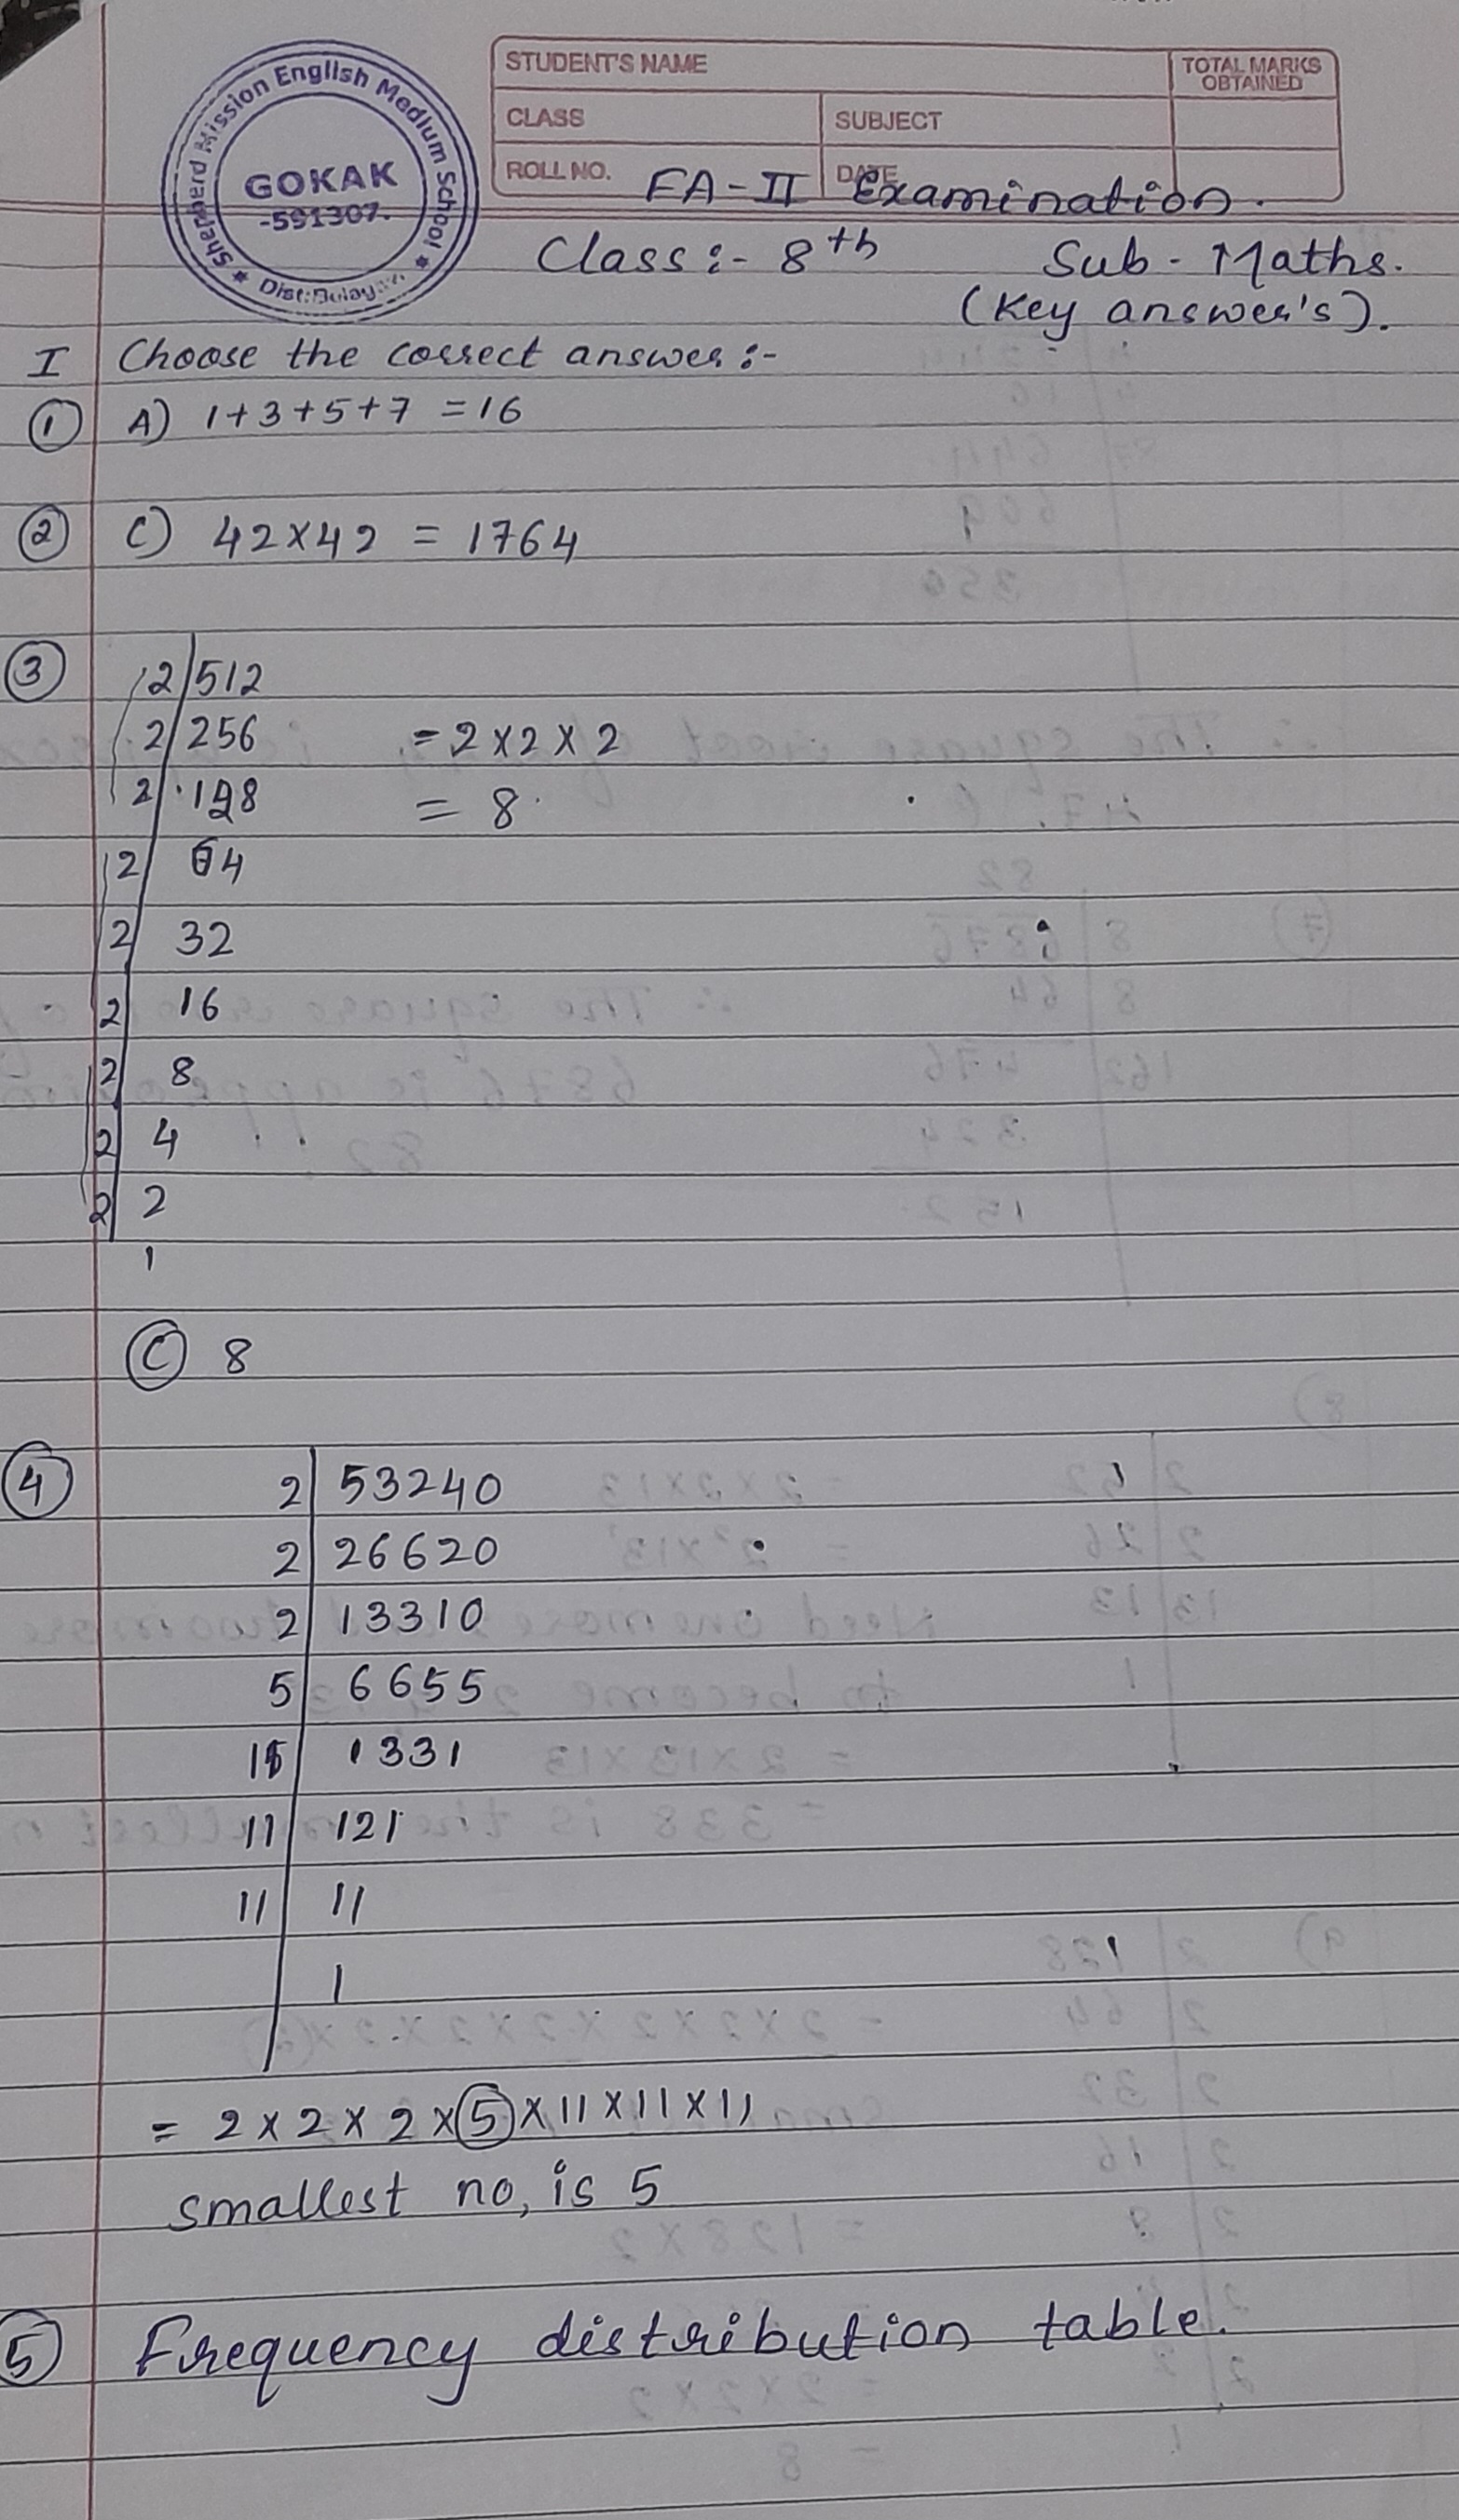 Shepherd Mission English Medium School
GOKAK
-591307-
STUDENT'S NAME
TOTAL MARKS OBTAINED
CLASS
SUBJECT
ROLL NO.
DATE
FA-II Examination.
Class:- 8th Sub - Maths.
(Key answer's).
I Choose the correct answer:-
① A) 1+3+5+7 =16
② C) 42×42 = 1764
③ 2 512
2 256 = 2×2×2
2 128 = 8
2 64
2 32
2 16
2 8
2 4
2 2
1
Ⓒ 8
④ 2 53240
2 26620
2 13310
5 6655
11 1331
11 121
11 11
1
= 2×2×2×⑤×11×11×11
smallest no, is 5
⑤ Frequency distribution table.